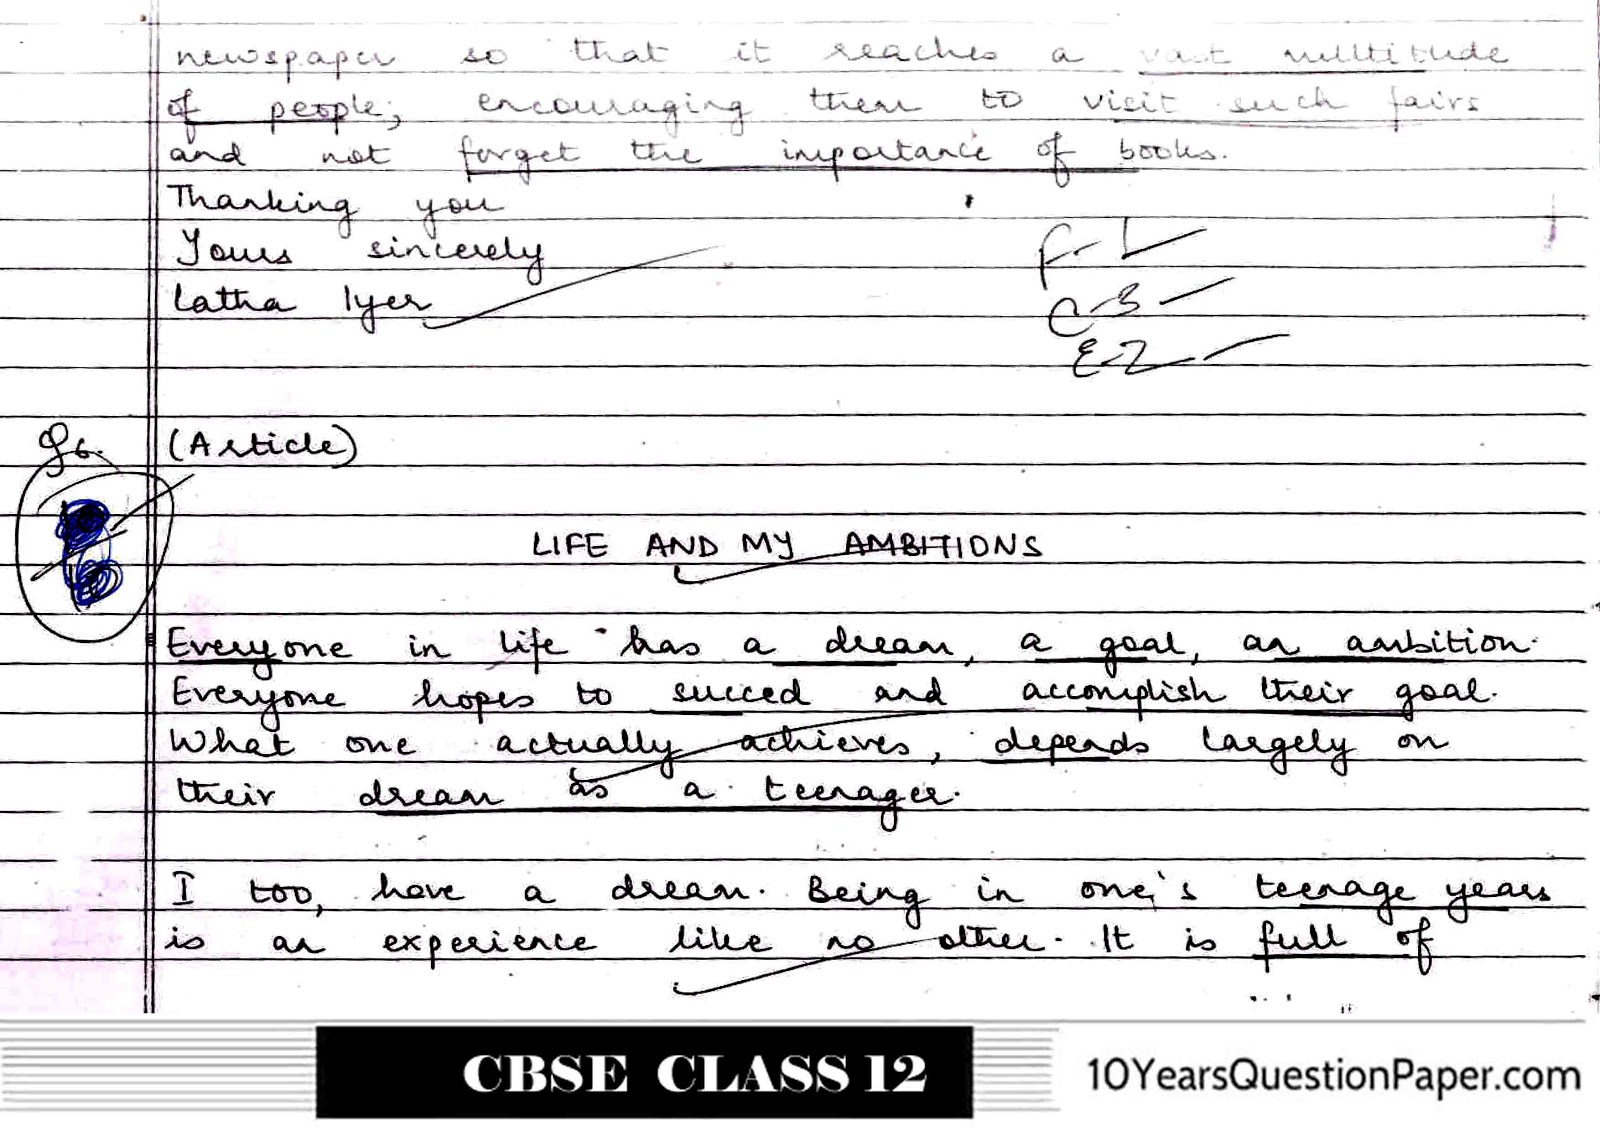 newspaper so that it reaches a vast multitude
of people, encouraging them to visit such fairs
and not forget the importance of books.
Thanking you
Yours sincerely
Latha Iyer
F-1
C-3
E-2
Q6. (Article)
LIFE AND MY AMBITIONS
Everyone in life has a dream, a goal, an ambition.
Everyone hopes to succed and accomplish their goal.
What one actually achieves, depends largely on
their dream as a teenager.
I too, have a dream. Being in one's teenage years
is an experience like no other. It is full of
CBSE CLASS 12
10YearsQuestionPaper.com